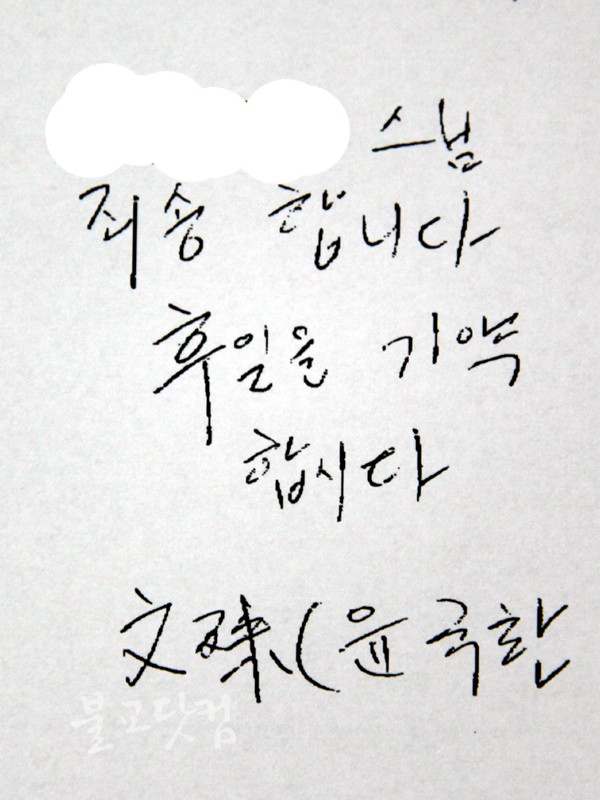 스님
죄송 합니다
후일을 기약
합시다
文殊(윤국환
불교닷컴